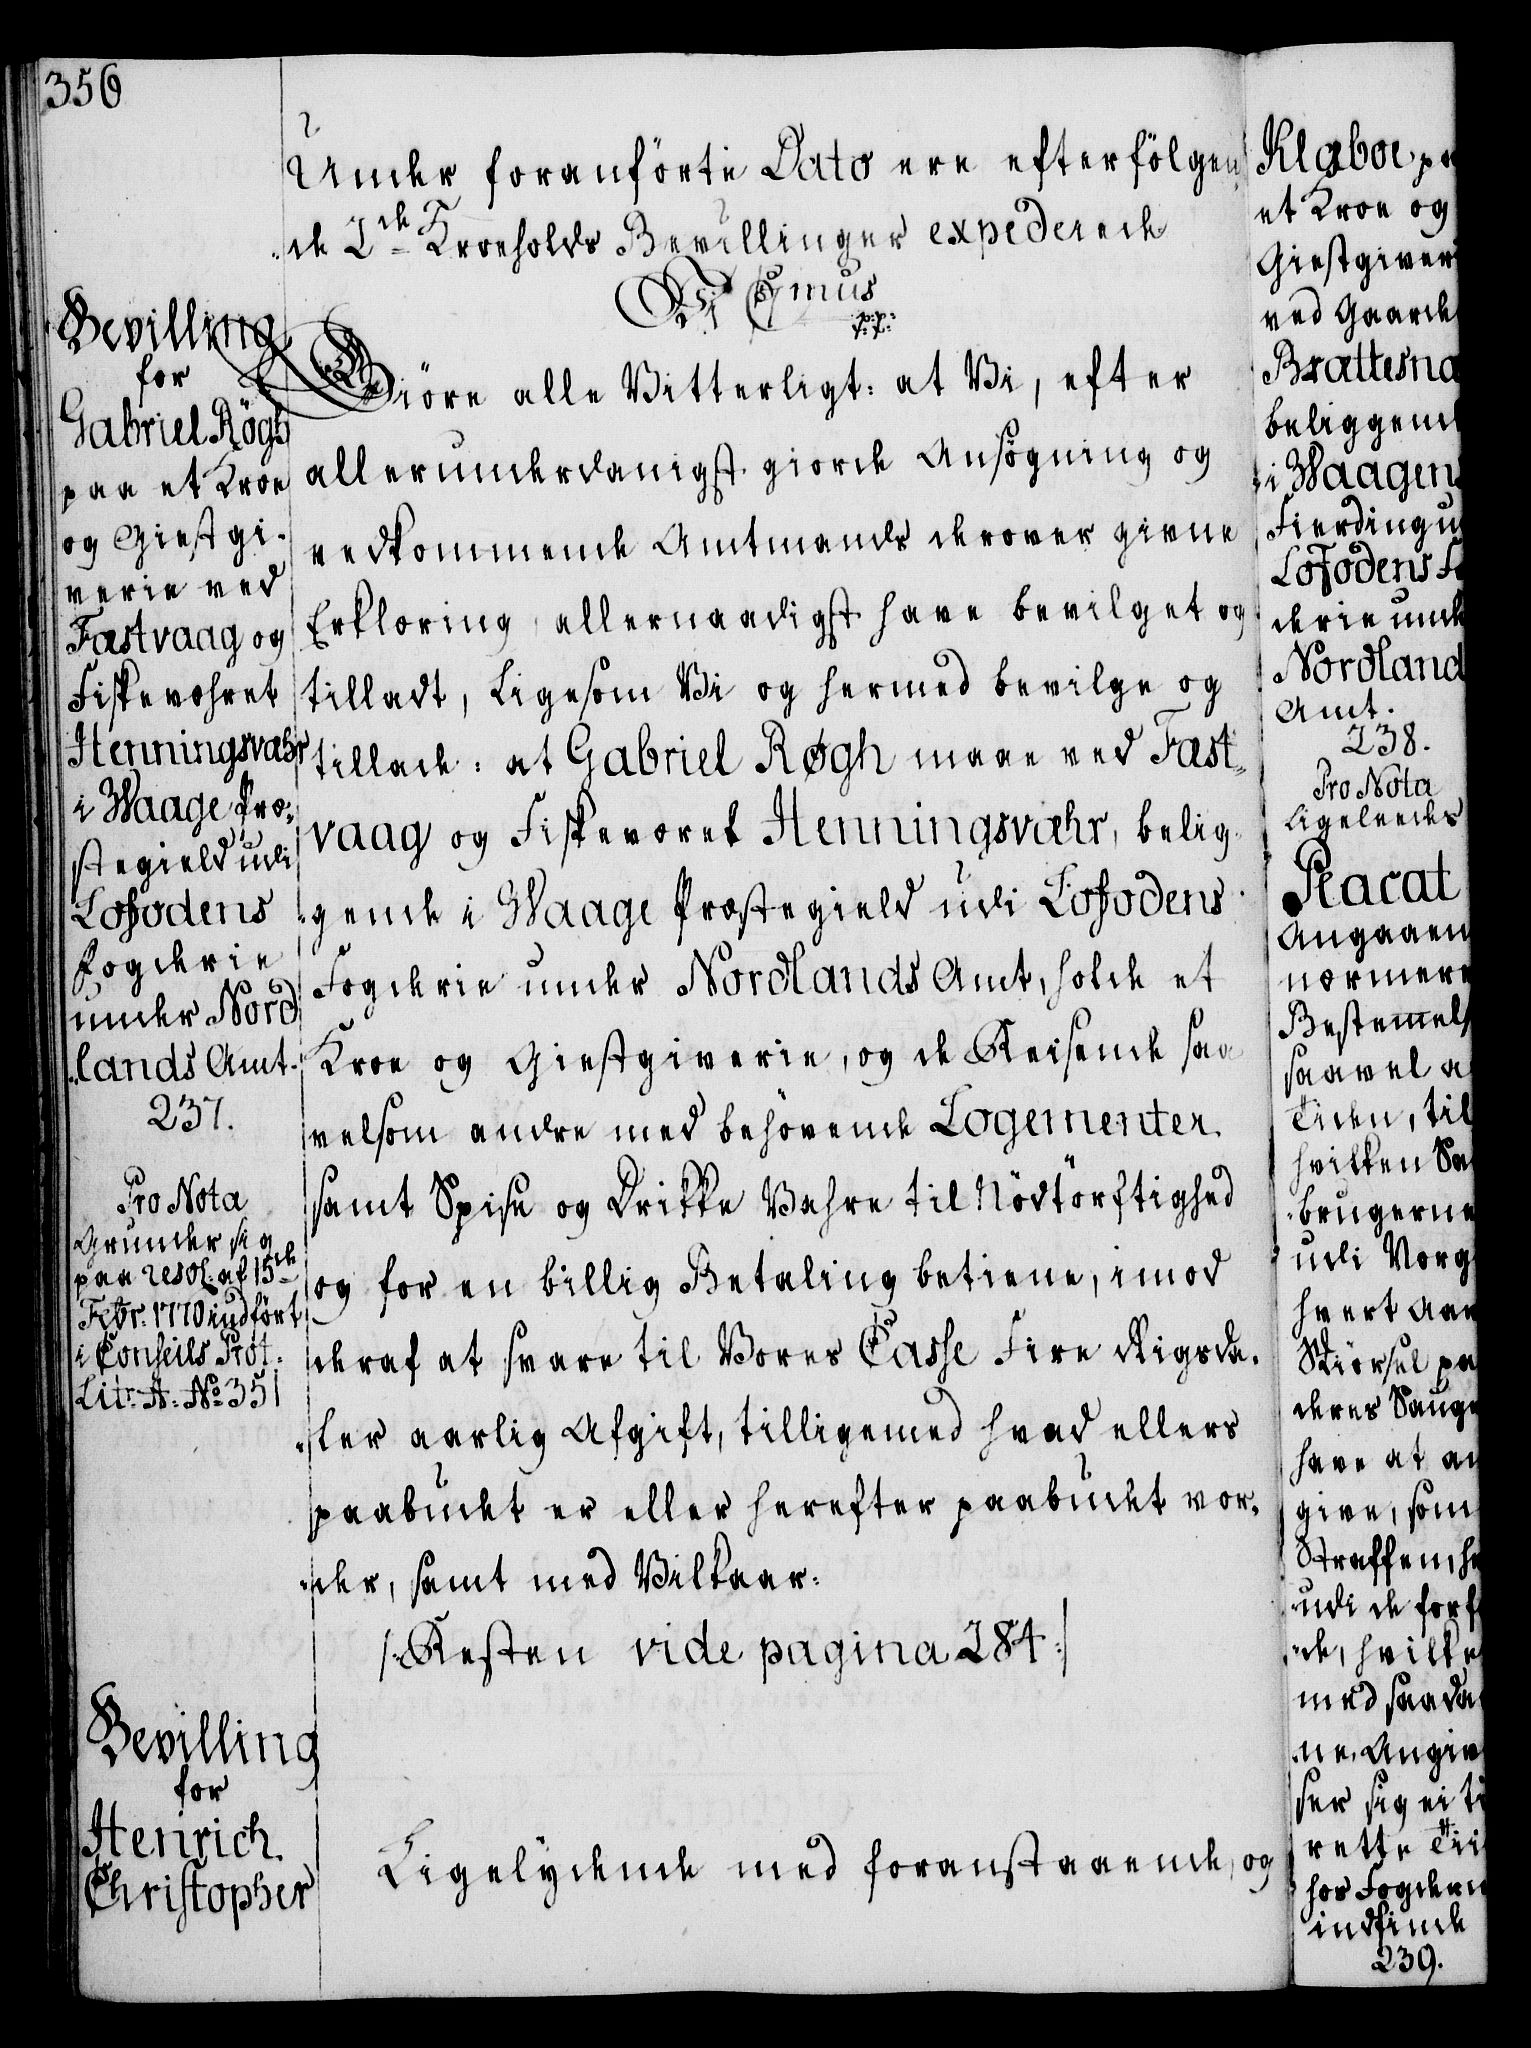 356
Under foranförte Dato ere efterfölgen
de 2de Kroeholds Bevillinger expederede
Vi Chr: 7mus
p: p:
t: t:
Bevilling
for
Gabriel Røgh
paa et Kroe
og Giestgi-
verie ved
Fastvaag og
Fiskevæhret
Henningsvæhr
i Waage Præ-
stegield udi
Lofodens
Fogderie
under Nord
lands Amt.
237.
Pro Nota
Grunder sig
paa resol: af 15de
Febr: 1770 indfört
i Conseils Prot:
Litr: A: No 351
Giöre alle Vitterligt: at Vi, efter
allerunderdanigst giorde Ansøgning og
vedkommende Amtmands derover givne
Erklæring, allernaadigst have bevilget og
tilladt, Ligesom Vi og hermed bevilge og
tillade: at Gabriel Røgh maae ved Fast-
vaag og Fiskeværet Henningsvæhr, belig-
gende i Waage Præstegield udi Lofodens
Fogderie under Nordlands Amt, holde et
Kroe og Giestgiverie, og de Reisende saa
velsom andre med behövende Logementer
samt Spise og Drikke Vahre til Nödtörftighed
og for en billig Betaling betiene, imod
deraf at svare til Vores Casse Fire Rigsda-
ler aarlig Afgift, tilligemed hvad ellers
paabudet er eller herefter paabudet vor-
der, samt med Vilkaar:
/: Resten vide pagina 284 :/
Bevilling
for
Henrich
Christopher
Ligelydende med foranstaaende, og
Klæboe pa
et Kroe og
Giestgiver
ved Gaarde
Brattesna
beliggend
i Waagen
Fierding u
Lofodens Fo
derie unde
Nordland
Amt.
238.
Pro Nota
Ligeledes
Placat
Angaaen
nærmere
Bestemels
saavel a
Tiden, til
hvilken Sa
brugerne
udi Norg
hvert Aar
Skiörsel pa
deres Sauge
have at an
give, som
Straffen, h
udi de forf
de, hvilke
med saada
ne Angiv
ser sig ei ti
rette Tii
hos Fogden
indfinde
239.